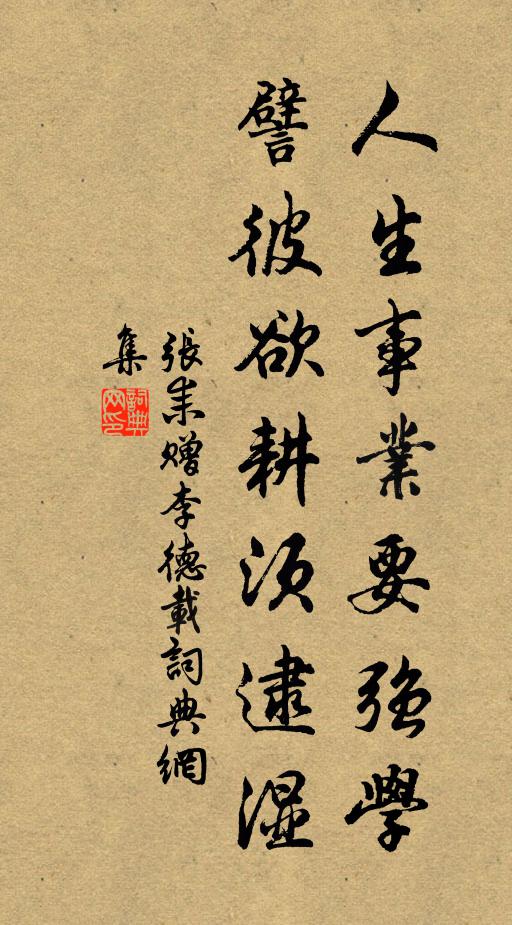 人生事業要強學
譬彼欲耕須逮濕
張耒贈李德載詞典網
集
詞典
网印